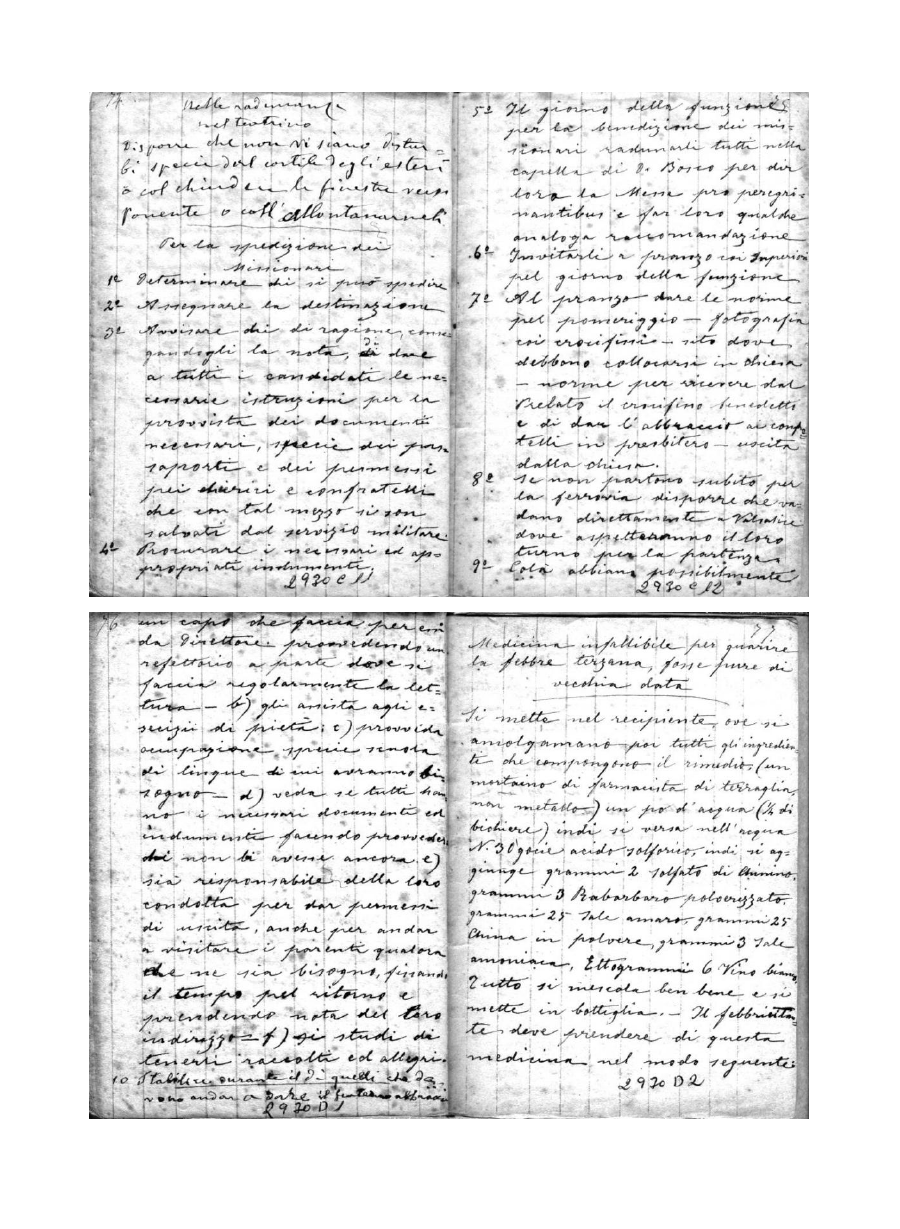 74
Nelle radunanze
nel teatrino
Disporre che non vi siano distur=
bi specie dal cortile degli esterni
o col chiudere le finestre verso
ponente o coll'allontanarneli
Per la spedizione dei
Missionari
1º Determinare chi si può spedire
2º Assegnare la destinazione
3º Avvisare chi di ragione, conse=
gnandogli la nota, di dare
a tutti i candidati le ne=
cessarie istruzioni per la
provvista dei documenti
necessari, specie dei pas
saporti e dei permessi
pei chierici e confratelli
che con tal mezzo si son
salvati dal servizio militare.
4º Procurare i necessari ed ap=
propriati indumenti.
2930 C 11
5º Il giorno della funzione
per la benedizione dei mis=
sionari radunarli tutti nella
capella di D. Bosco per dir
loro la Messa pro peregri=
nantibus e far loro qualche
analoga raccomandazione
6º Invitarli a pranzo coi Superiori
pel giorno della funzione
7º Al pranzo dare le norme
pel pomeriggio — fotografia
coi crocifissi — sito dove
debbono collocarsi in chiesa
— norme per ricevere dal
Prelato il crocifisso benedetto
e di dar l'abbraccio ai confra
telli in presbitero — uscita
dalla chiesa.
8º Se non partono subito per
la ferrovia disporre che va=
dano direttamente a Valsalice
dove aspetteranno il loro
turno per la partenza
9º Colà abbiano possibilmente
2930 C 12
76
un capo che faccia per essi
da Direttore: provvedendo un
refettorio a parte dove si
faccia regolarmente la let=
tura — b) gli assista agli e=
sercizii di pietà; c) provveda
occupazione specie scuola
di lingue di cui avranno bi=
sogno — d) veda se tutti han
no i necessari documenti ed
indumenti facendo provvedere
chi non li avesse ancora. e)
sia responsabile della loro
condotta per dar permessi
di uscita, anche per andar
a visitare i parenti qualora
che ne sia bisogno, fissando
il tempo pel ritorno e
prendendo nota del loro
indirizzo — f) si studi di
tenerli raccolti ed allegri.
10 Stabilire durante il dì quelli che de=
vono andar a dare il fraterno abbraccio
2930 D 1
Medicina infallibile per guarire
la febbre terzana, fosse pure di
vecchia data
Si mette nel recipiente, ove si
amolgamano poi tutti gli ingredien=
ti che compongono il rimedio, (un
mortaino di farmacista di terraglia,
non metallo) un po' d'acqua (½ di
bichiere) indi si versa nell'acqua
N. 30 gocie acido solforico, indi si ag=
giunge grammi 2 solfato di Chinino,
grammi 3 Rabarbaro polverizzato,
grammi 25 Sale amaro, grammi 25
China in polvere, grammi 3 Sale
amoniaca, Ettogrammi 6 Vino bianco,
Tutto si mescola ben bene e si
mette in bottiglia. — Il febbricitan=
te deve prendere di questa
medicina nel modo seguente:
2930 D 2